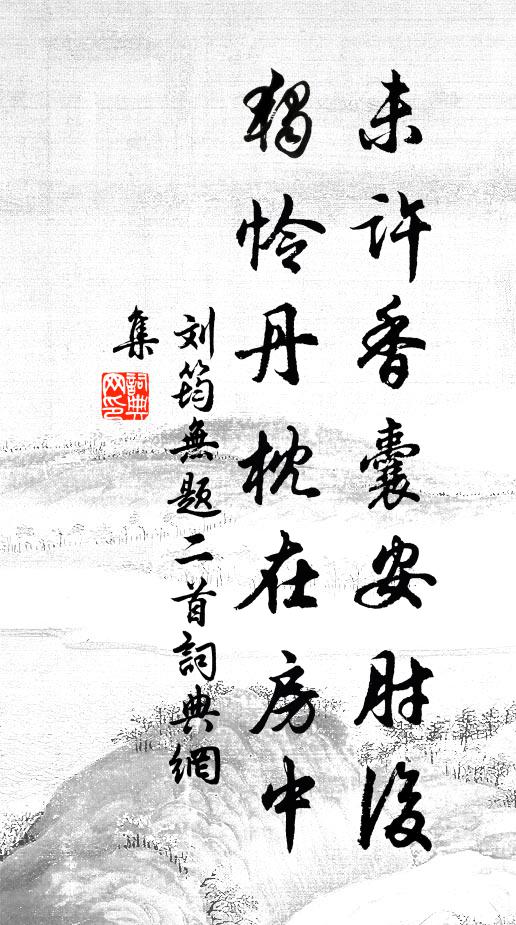 未许香囊安肘後
獨怜丹枕在房中
刘筠無题二首詞典網
集
詞典网印